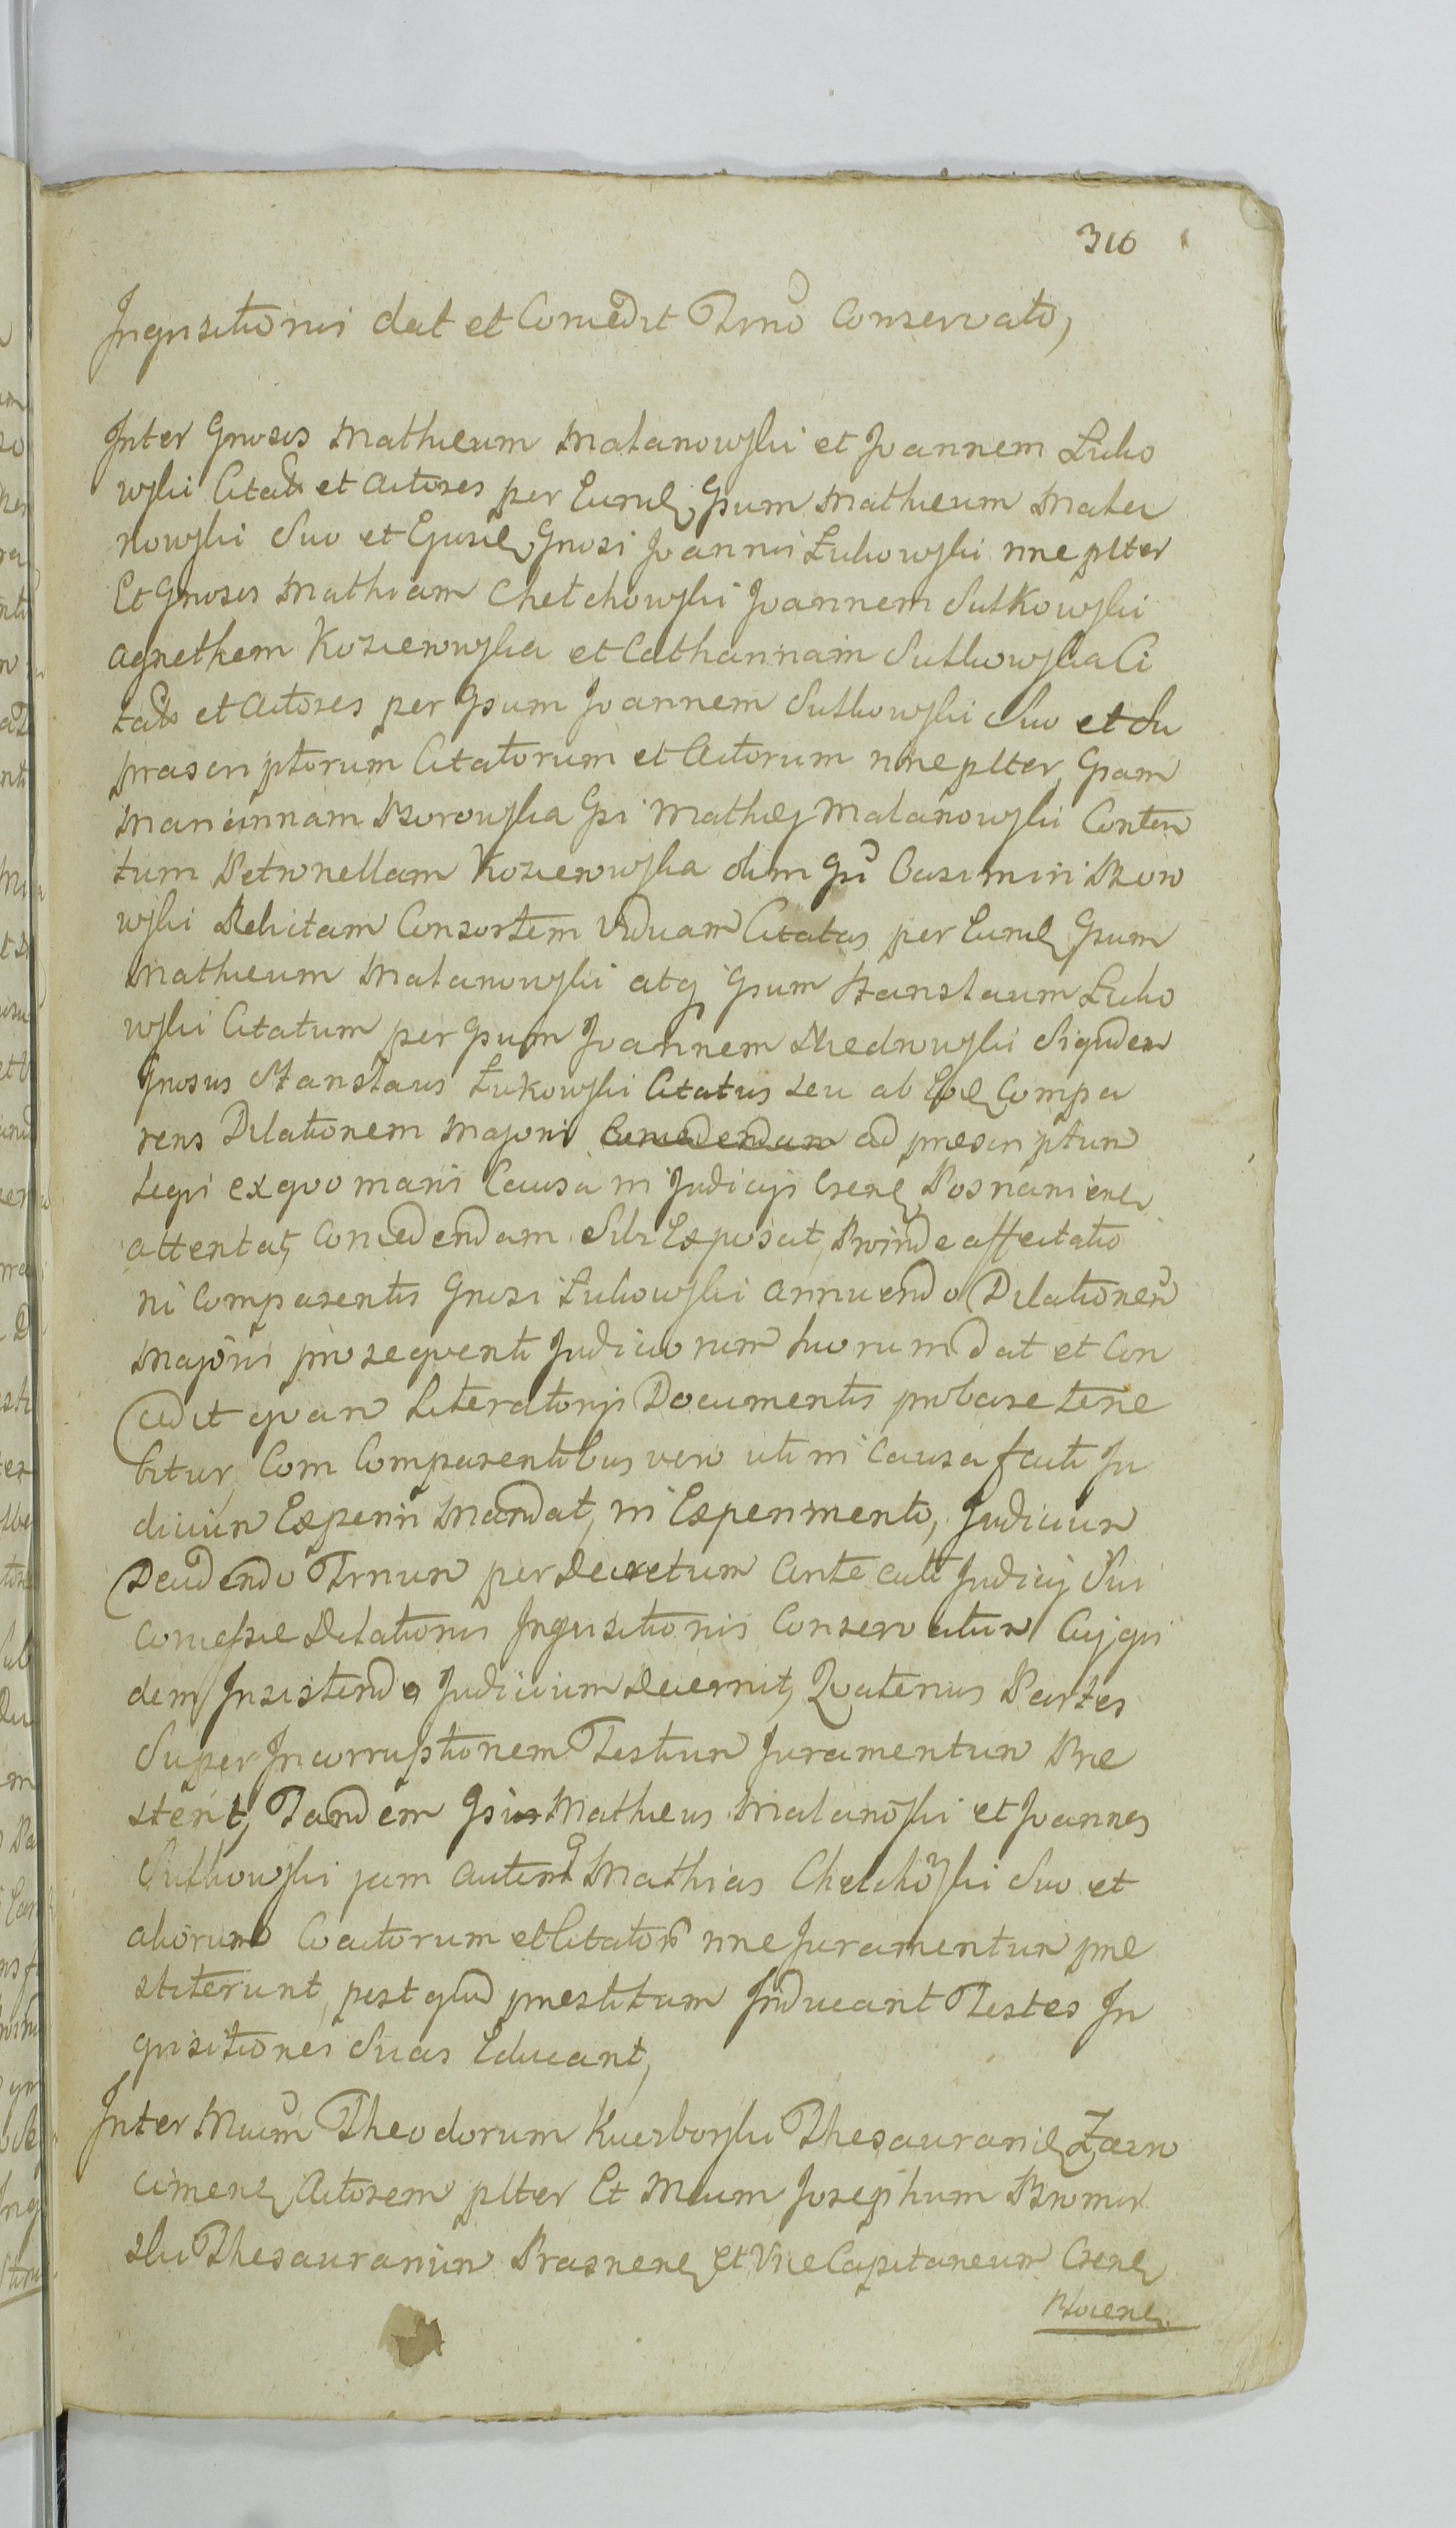 316
Inquisitionis dat et Concedit Trno Conservato,
Inter Gnosos Mathaeum Malanowski et Joannem Łuko
wski Citatos et Actores per Eund Gsum Mathaeum Mala
nowski Suo et Ejusd Gnosi Joannis Łukowski nne plter
Et Gnosos Mathiam Chełchowski Joannem Sutkowski
Agnethem Kozienowska et Catharinam Sutkowska Ci
tatos et Actores per Gsum Joannem Sutkowski Suo et Su
prascriptorum Citatorum et Actorum nne plter, Gsam
Mariannam Borowska Gsi Mathej Malanowski Conten
tum Petronellam Kozienowska olim Gsi Casimiri Boro
wski Relictam Consortem Viduam Citatas per Eund Gsum
Mathaeum Malanowski atq Gsum Stanslaum Łuko
wski Citatum per Gsum Joannem Niedrowski Siquidem
Gnosus Stanslaus Łukowski Citatus seu ab Eod Compa
rens Dilationem Majoris Concedendam ad praescriptum
Legis exquo maris Causa in Judicijs Crens Posnaniens
attentat, Concedendam Sibi Exposcit, Proinde affectatio
ni Comparentis Gnosi Łukowski annuendo Dilationem
Majoris pro sequenti Judiciorum Suorum dat et Con
cedit quam Literatorijs Documentis probare tene
bitur, Com Comparentibus vero uti in Causa facti Ju
dicium Experiri Mandat, in Experimento, Judicium
Decidendo Trnum per Decretum Ante acti Judicij Sui
Concessae Dilationis Inquisitionis Conservatum Cujqui
dem Insistendo Judicium Decernit, Quatenus Partes
Super Incorruptionem Testium Juramentum Prae
sterit, Tandem Gsus Mathaeus Malanowski et Joannes
Sutkowski jam autem G Mathias Chelchowski Suo et
aliorum Coactorum et Citatorum nne Juramentum prae
stiterunt, post quod praestitum Inducant Testes In
quisitiones Suas Educant,
Inter Mcum Theodorum Kuczborski Thesaurarid Zawo
cimens Actorem plter Et Mcum Josephum Bromir
ski Thesaurarium Prasnens et ViceCapitaneum Crens
Plocens